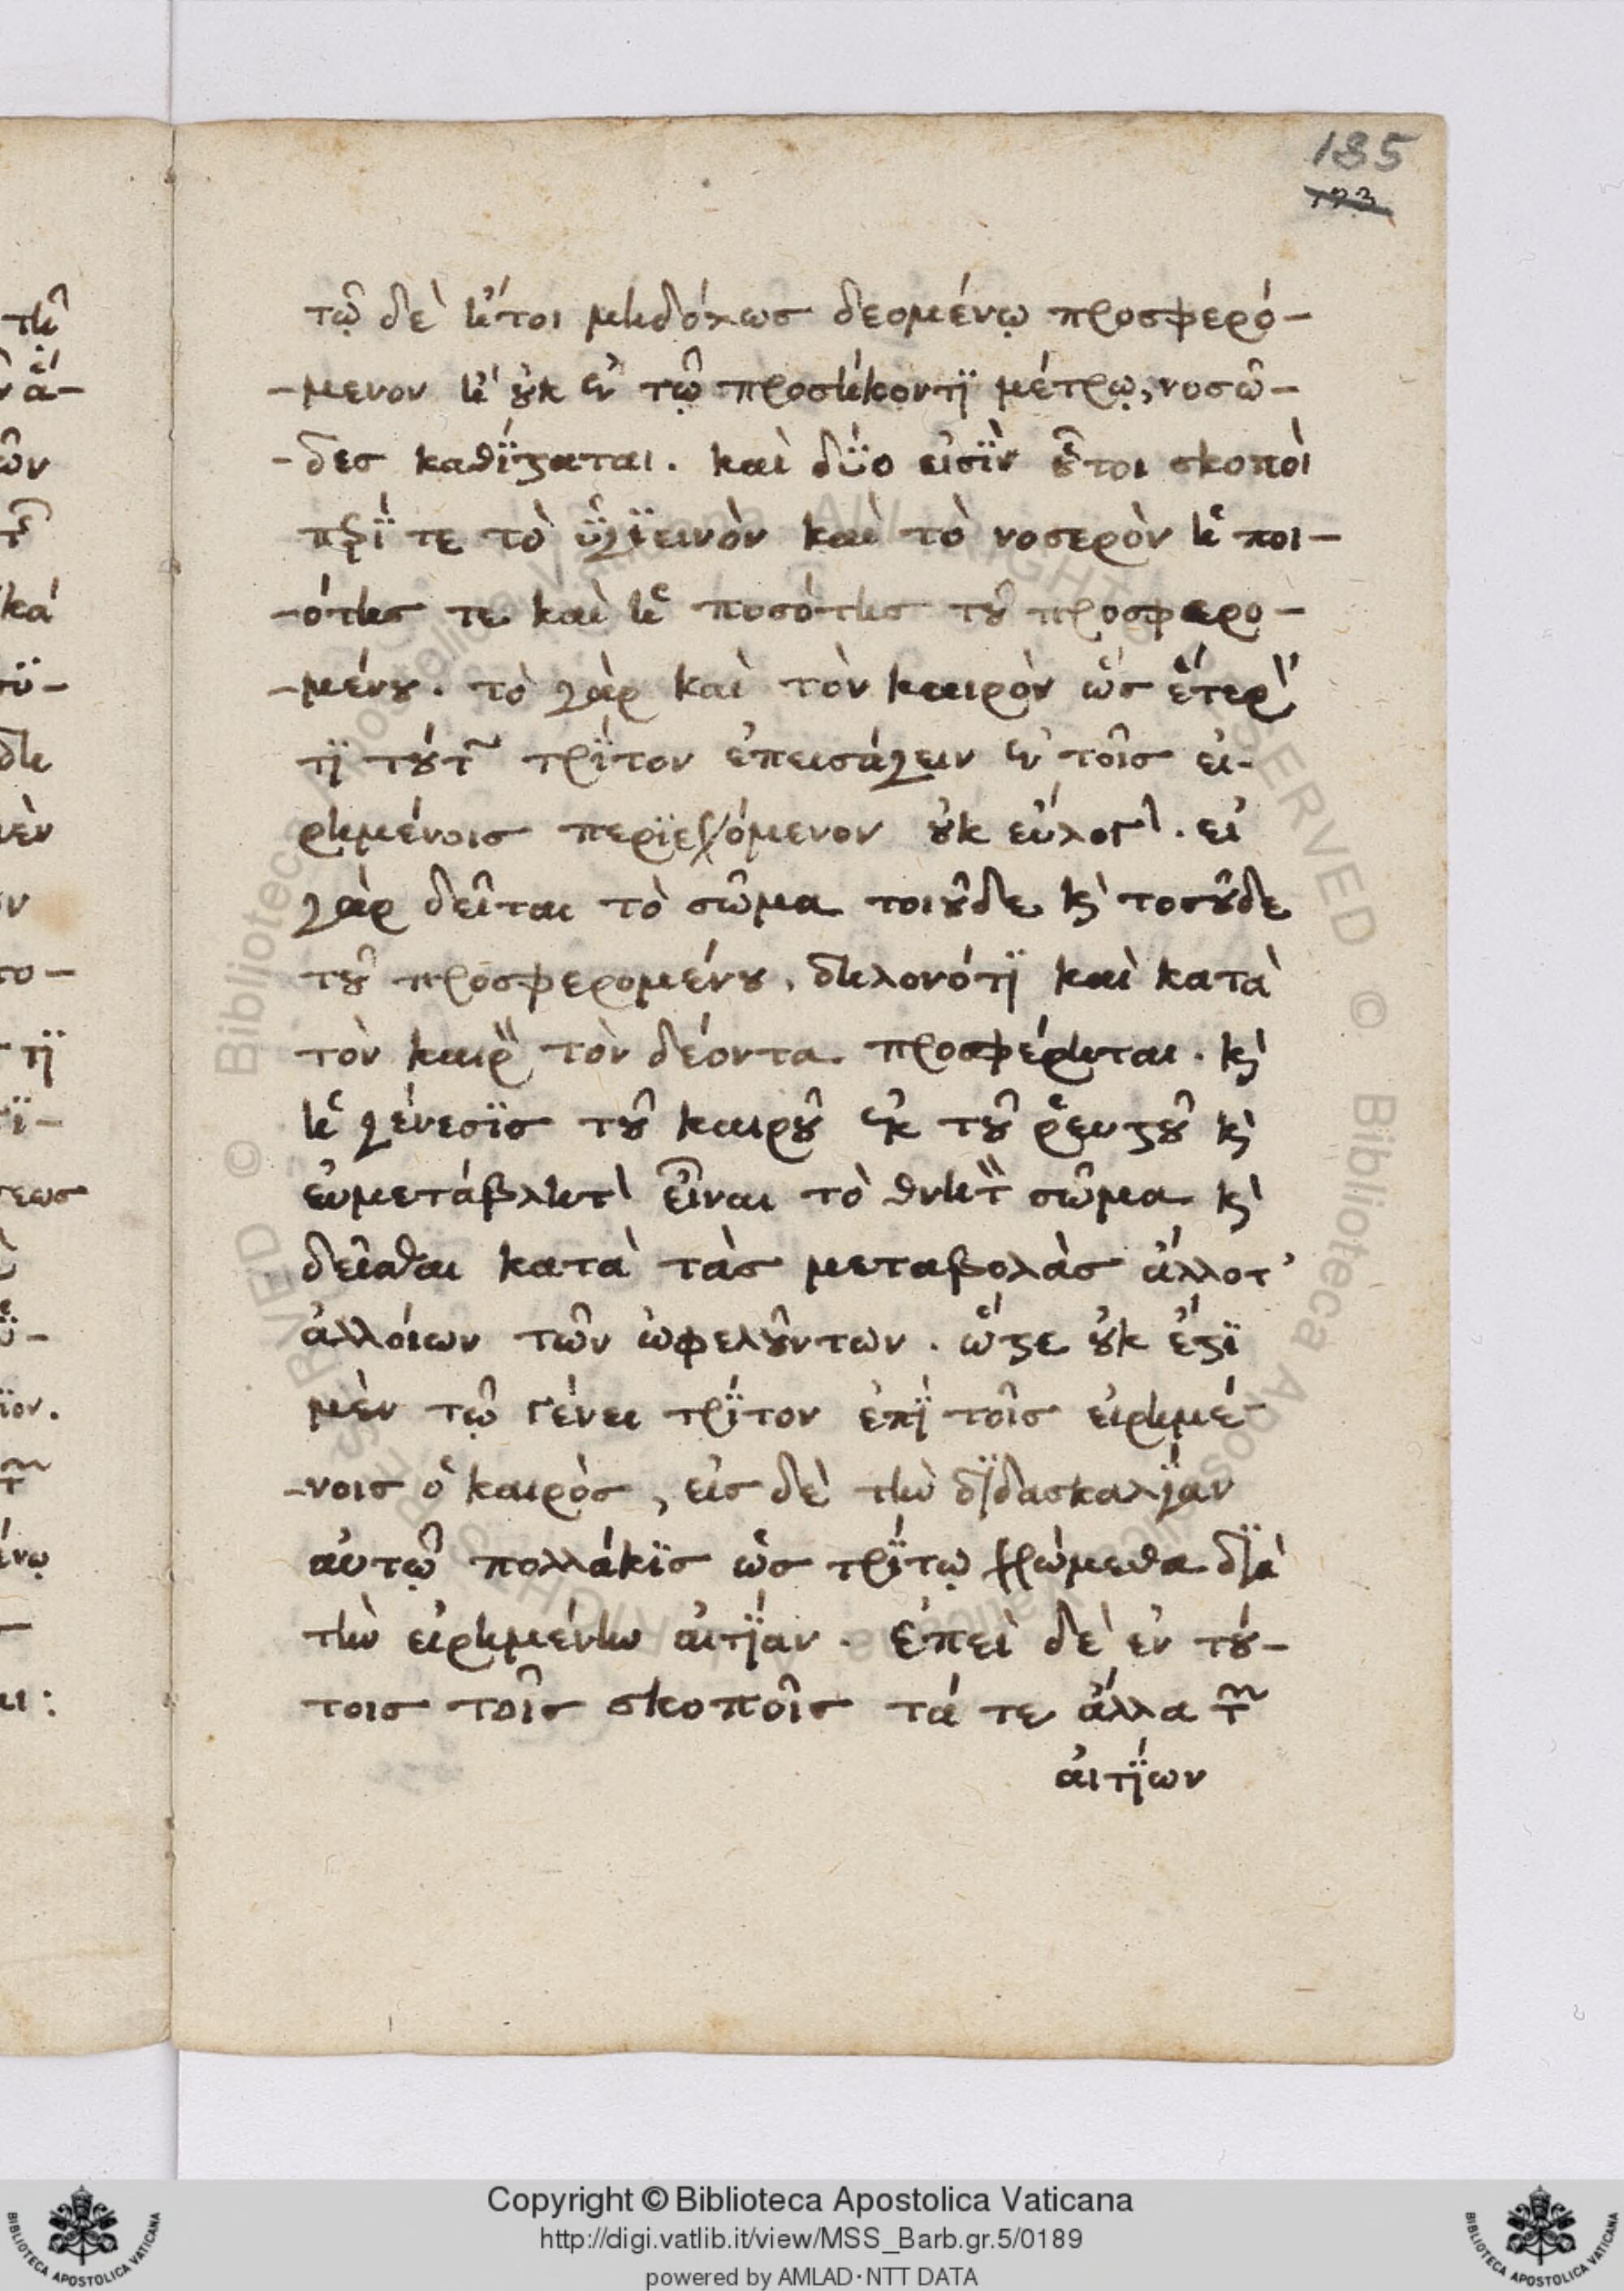 135
193
τῷ δὲ ἤτοι μηδόλως δεομένῳ προσφερό-
-μενον ἢ οὐκ ἐν τῷ προσήκοντϊ μέτρῳ, νοσῶ-
-δες καθΐσταται. καὶ δΰο εἰσῒν οὗτοι σκοποὶ
περΐ τε τὸ ὑγϊεινὸν καὶ τὸ νοσερὸν ἡ ποι-
-ότης τε καὶ ἡ ποσότης τοῦ προσφερο-
-μένου. τὸ γὰρ καὶ τὸν καιρὸν ὥς ἕτερον
τϊ τούτων τρΐτον ἐπεισάγειν ἐν τοῖς εἰ-
ρημένοις περϊεχόμενον οὐκ εὔλογον. εἰ
γὰρ δεῖται τὸ σῶμα τοιοῦδε καὶ τοσοῦδε
τοῦ προσφερομένου. δηλονότϊ καὶ κατὰ
τὸν καιρὸν τὸν δέοντα προσφέρηται. καὶ
ἡ γένεσϊς τοῦ καιροῦ ἐκ τοῦ ῥευστοῦ καὶ
εὐμετάβλητον εἶναι τὸ θνητὸν σῶμα καὶ
δεῖσθαι κατὰ τὰς μεταβολὰς ἄλλοτ'
ἀλλοίων τῶν ὠφελούντων. ὥστε οὐκ ἔστϊ
μὲν τῷ γένει τρΐτον ἐπῒ τοῖς εἰρημέ-
-νοις ὁ καιρὸς, εἰς δὲ τὴν δϊδασκαλΐαν
αὐτῷ πολλάκϊς ὡς τρΐτῳ χρώμεθα δϊὰ
τὴν εἰρημένην αἰτΐαν. ἐπεὶ δὲ ἐν τού-
τοις τοῖς σκοποῖς τά τε ἄλλα τῶν
αἰτΐων
Copyright © Biblioteca Apostolica Vaticana
http://digi.vatlib.it/view/MSS_Barb.gr.5/0189
powered by AMLAD·NTT DATA